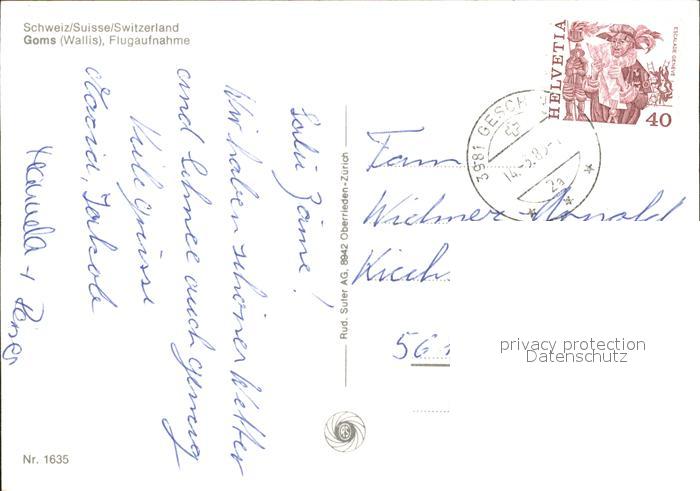 Schweiz/Suisse/Switzerland
Goms (Wallis), Flugaufnahme
Salü Zäme!
Wir haben schönes Wetter
und Schnee auch genug
Viele Grüsse
Jakob
Manuela +
Nr. 1635
Rud. Suter AG, 8942 Oberrieden-Zürich
HELVETIA
ESCALADE GENÈVE
40
3981 GESCH
14.
2a
Fam
Widmer Arnold
Kirch
561
privacy protection
Datenschutz